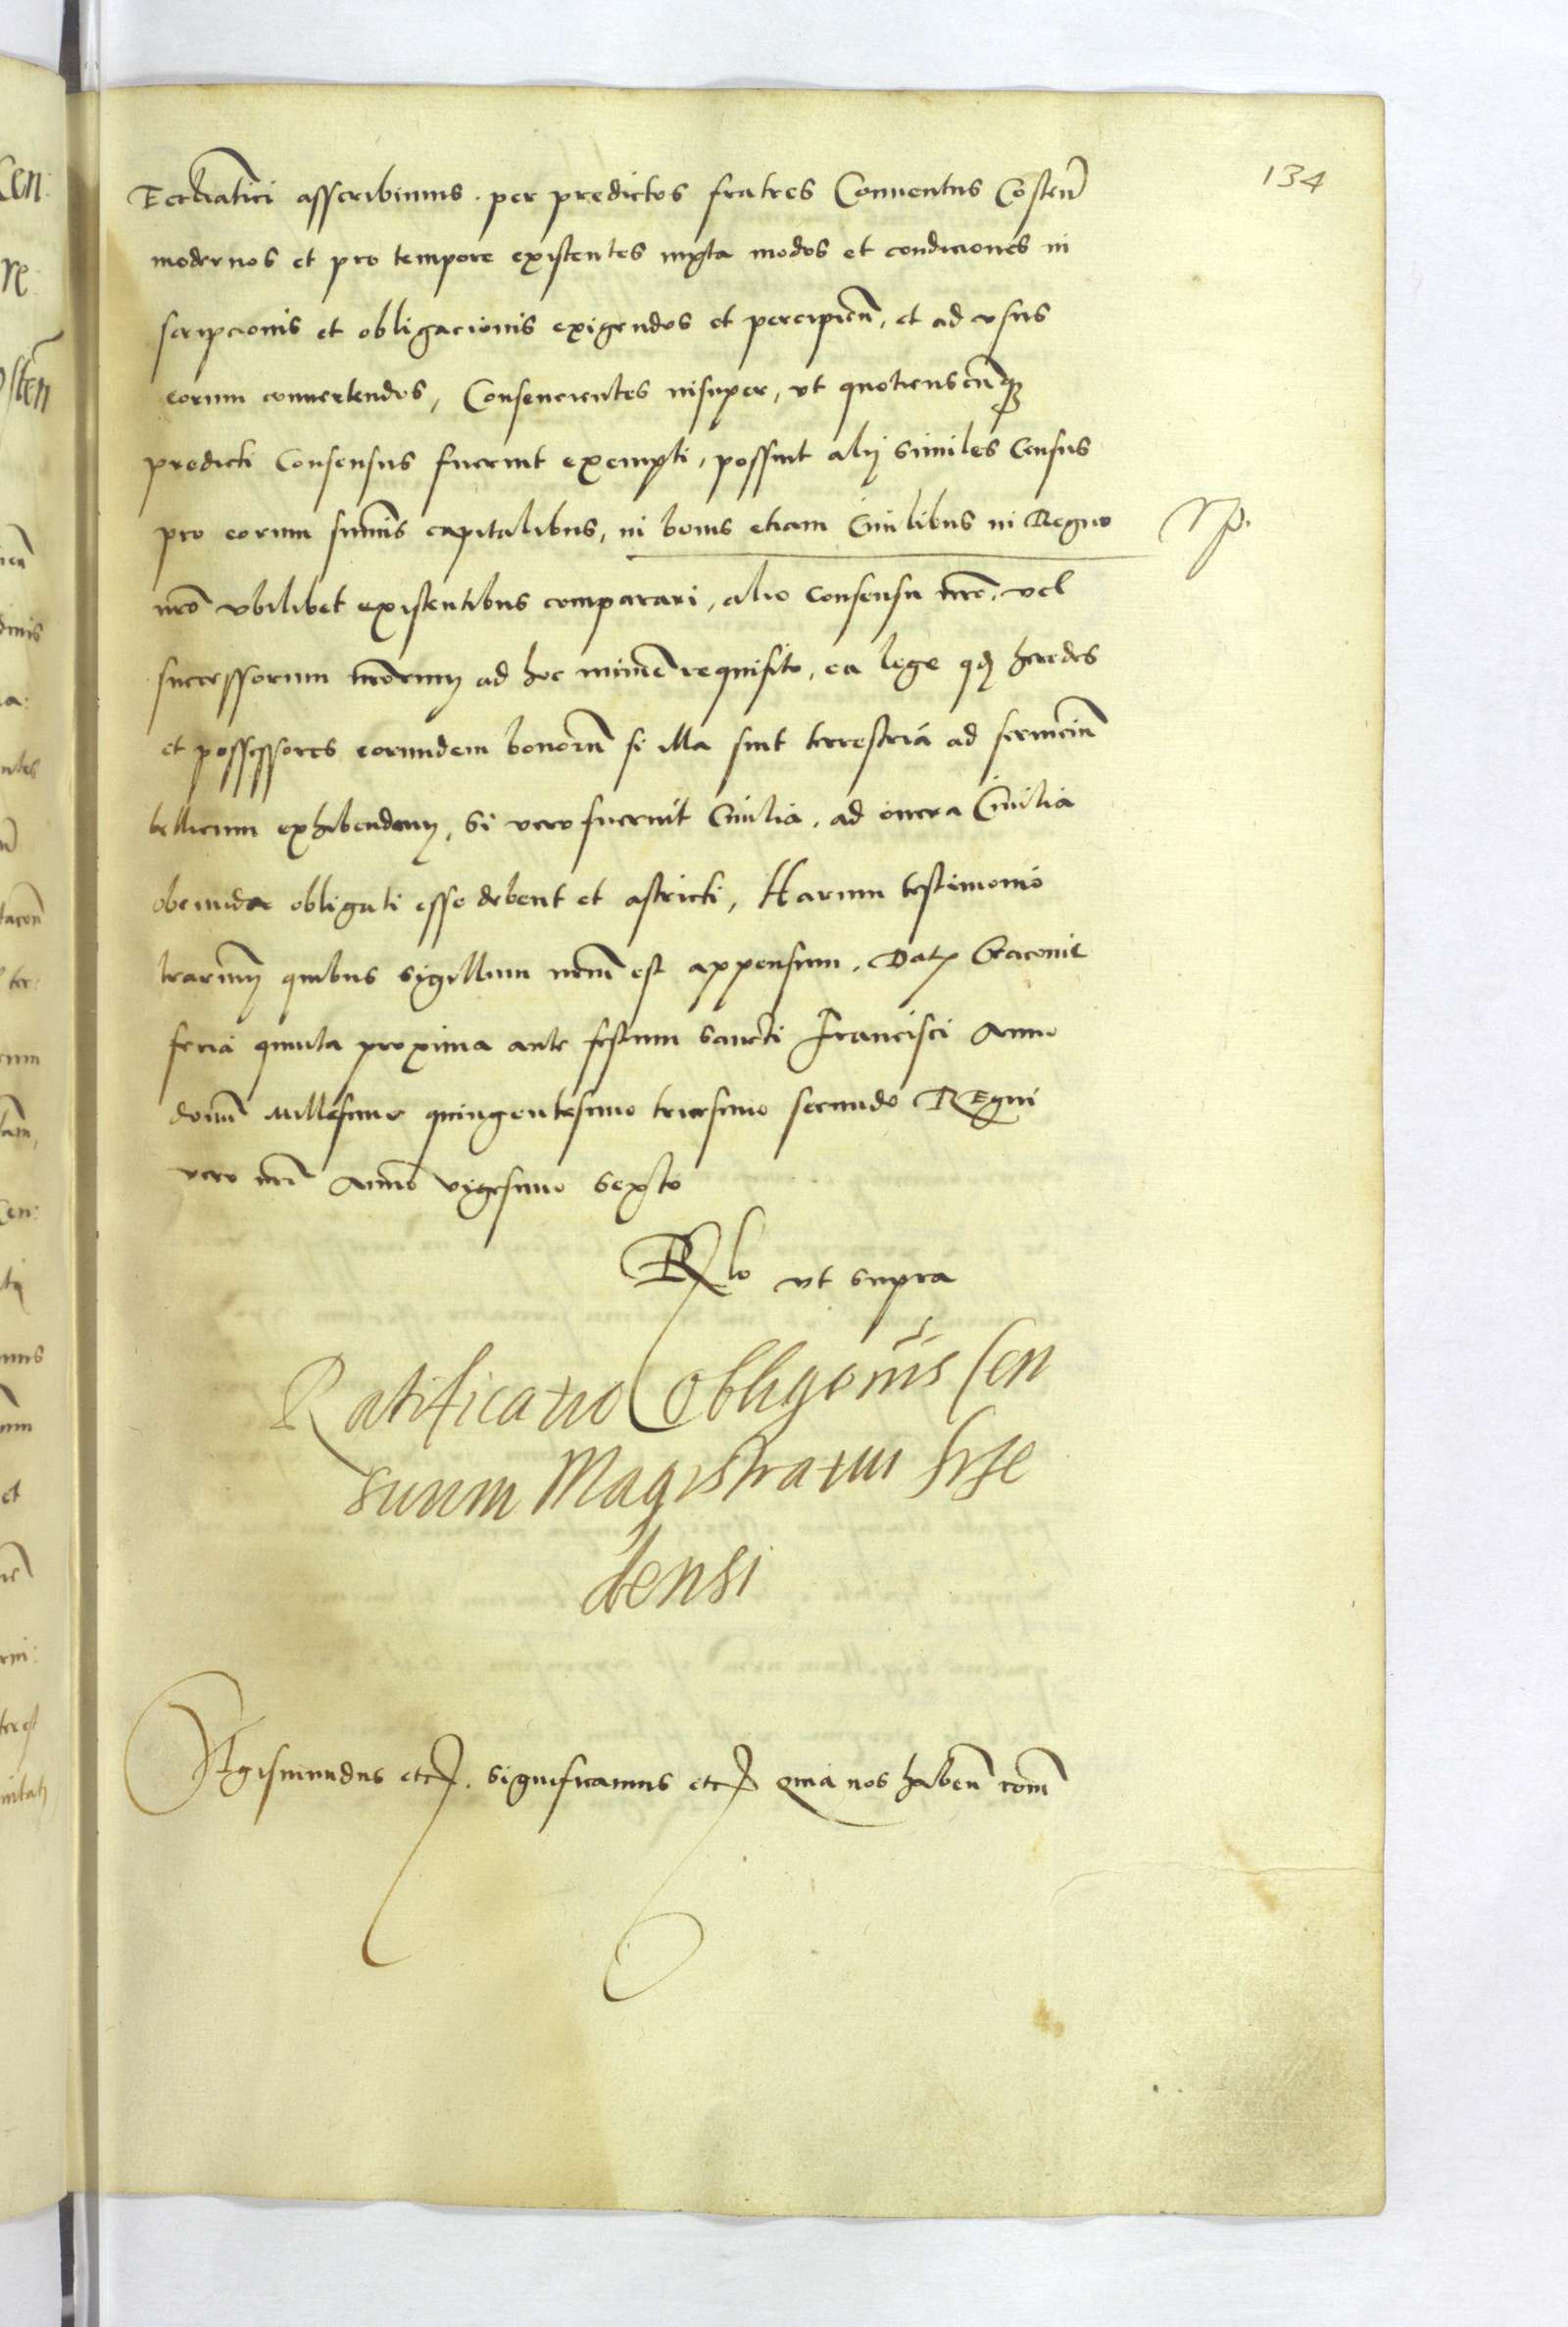 134
Eccl̄iatici asscribimus . per predictos fratres Conuentus Costen̄
modernos et pro tempore existentes iuxta modos et condiciones in
scripcionis et obligacionis exigendos et percipien̄, et ad vsus
eorum conuertendos, Consencientes insuper, vt quotienscūq3
predicti Consensus fuerint exempti, possint alij similes Census
pro eorum sum̄is capitalibus, in bonis etiam Ciuilibus in Regno
nr̄o vbilibet existentibus comparari, alio consensu nr̄o, vel
successorum nr̄orum ad hoc minime requisito, ea lege q̄d heredes
et possessores eorundem bonorū si illa sint terrestria ad seruiciū
bellicum exhibendum, si vero fuerint Ciuilia, ad onera Ciuilia
obeunda obligati esse debent et astricti, Harum testimonio
l̄rarum quibus sigillum nr̄m est appensum. Dat̄ Cracouie
feria quinta proxima ante festum sancti Francisci Anno
domī Millesimo quingentesimo tricesimo secundo REgni
vero nr̄i Anno vigesimo sexto
Rlo vt supra
Ratificatio Obligōnis Cen
suum Magistratui
densi
Sigismundus etc. significamus etc Quia nos haben̄ com̄